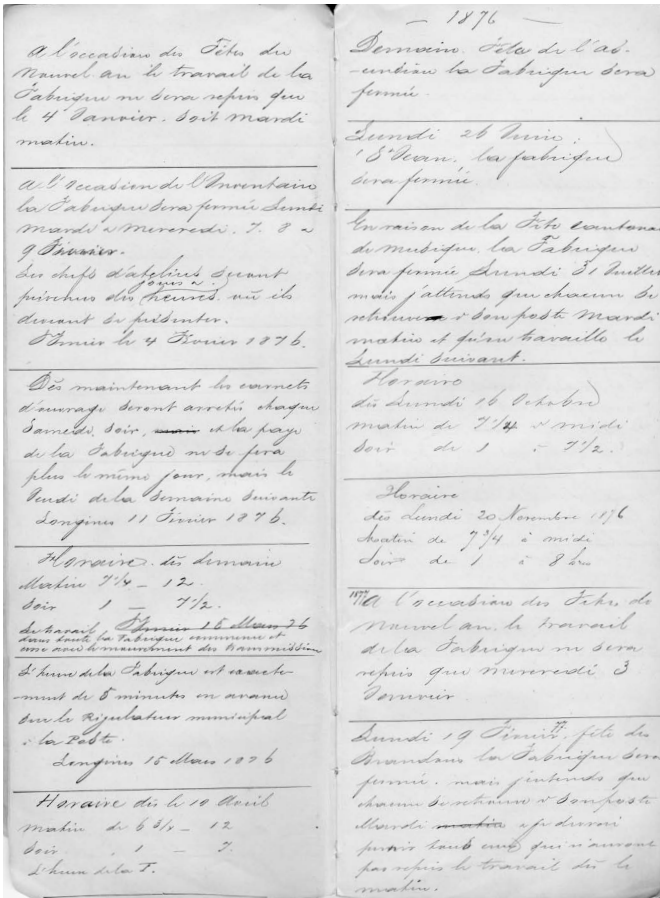 A l'occasion des Fêtes du
Nouvel an le travail de la
Fabrique ne sera repris que
le 4 Janvier. soit Mardi
matin.
A l'occasion de l'Inventaire
la Fabrique sera fermée Lundi
Mardi & Mercredi. 7. 8 &
9 Février.
Les chefs d'ateliers seront
jours &
prévenus des heures où ils
devront se présenter.
St Imier le 4 Février 1876.
Dès maintenant les carnets
d'ouvrage seront arretés chaque
Samedi, soir, et la paye
de la Fabrique ne se fera
plus le même jour, mais le
Jeudi de la semaine suivante
Longines 11 Février 1876.
Horaire. dès demain
Matin 7 1/4 – 12.
Soir 1 – 7 1/2.
St Imier 15 Mars 76
Le travail
dans toute la Fabrique commence et
avec le mouvement des transmission
L'heure de la Fabrique est exacte-
ment de 5 minutes en avance
sur le Régulateur municipal
à la Poste.
Longines 15 Mars 1876
Horaire dès le 10 Avril
Matin de 6 3/4 – 12
Soir 1 – 7.
L'heure de la F.
– 1876 –
Demain. Fête de l'As-
-cention la Fabrique sera
fermée.
Lundi 26 Juin:
St Jean. la fabrique
sera fermée.
En raison de la Fête cantonale
de musique, la Fabrique
sera fermée Lundi 31 Juillet
mais j'attends que chacun se
retrouve à son poste Mardi
matin et qu'on travaille le
Lundi suivant.
Horaire
dès Lundi 16 Octobre
matin de 7 1/4 à midi
soir de 1 à 7 1/2.
Horaire
dès Lundi 20 Novembre 1876
Matin de 7 3/4 à midi
Soir de 1 à 8 hres
1877 A l'occasion des Fêtes de
Nouvel an, le travail
de la Fabrique ne sera
repris que mercredi 3
Janvier
Lundi 19 Février 77. fête des
Brandons la Fabrique sera
fermée. mais j'entends que
chacun se retrouve à son poste
Mardi matin & je devrai
punir tous ceux qui n'auront
pas repris le travail dès le
matin.